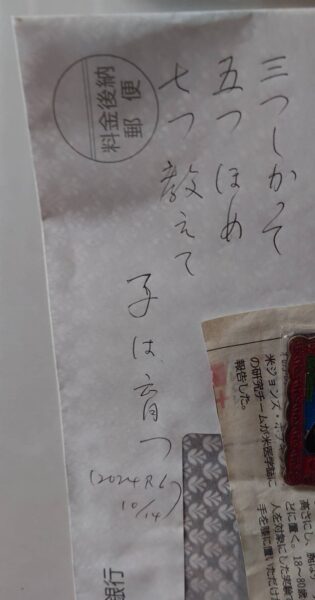 三つしかって
五つほめ
七つ教えて
子は育つ
(2024 R6
10/14)
料金後納
郵便
銀行
米ジョンズ・ホプ
の研究チームが米医学誌に
報告した。
高さにし、
どに置く。18～80歳
人を対象にした実験
手を膝に置いただけ